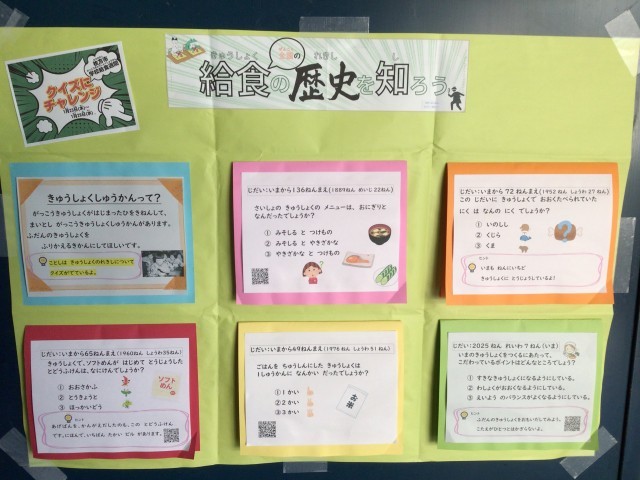 きゅうしょく ぜんこくの れきし し
給食の 全国の 歴史を知ろう
学校給食週間
クイズに
チャレンジ
きゅうしょくしゅうかんって？
がっこうきゅうしょくがはじまったひをきねんして、
まいとし がっこうきゅうしょくしゅうかんがあります。
ふだんのきゅうしょくを
ふりかえるきかんにしてほしいです。
ことしは きゅうしょくのれきしについて
クイズがでているよ。
じだい：いまから136ねんまえ(1889ねん めいじ22ねん)
さいしょの きゅうしょくのメニューは、おにぎりと
なんだったでしょうか？
① みそしる と つけもの
② みそしる と やきざかな
③ やきざかな と つけもの
じだい：いまから 72ねんまえ(1952 ねん しょうわ 27 ねん)
この じだいに きゅうしょくで おおくたべられていた
にく は なんの にく でしょうか？
① いのしし
② くじら
③ くま
ヒント
いまも ねんにいちど
きゅうしょくに とうじょうしているよ！
じだい：いまから65ねんまえ(1960ねん しょうわ35ねん)
きゅうしょくで、ソフトめんが はじめて とうじょうした
とどうふけんは、なにけんでしょうか？
① おおさかふ
② とうきょうと
③ ほっかいどう
ソフト
めん
ヒント
あげぱんを、かんがえだしたのも、この とどうふけん
です。にほんで、いちばん たかい ビル があります。
じだい：いまから49ねんまえ(1976 ねん しょうわ 51 ねん)
ごはんを ちゅうしんにした きゅうしょくは
1しゅうかんに なんかい だったでしょうか？
① 1 かい
② 2 かい
③ 3 かい
お米
じだい：2025 ねん れいわ 7 ねん (いま)
いまのきゅうしょくをつくるにあたって、
こだわっているポイントはどんなところでしょう？
① すきなきゅうしょくになるようにしている。
② わしょくがおおくなるようにしている。
③ えいよう のバランスがよくなるようにしている。
ヒント
ふだんのきゅうしょくをおもいだしてみよう。
こたえがひとつとはかぎらないよ。